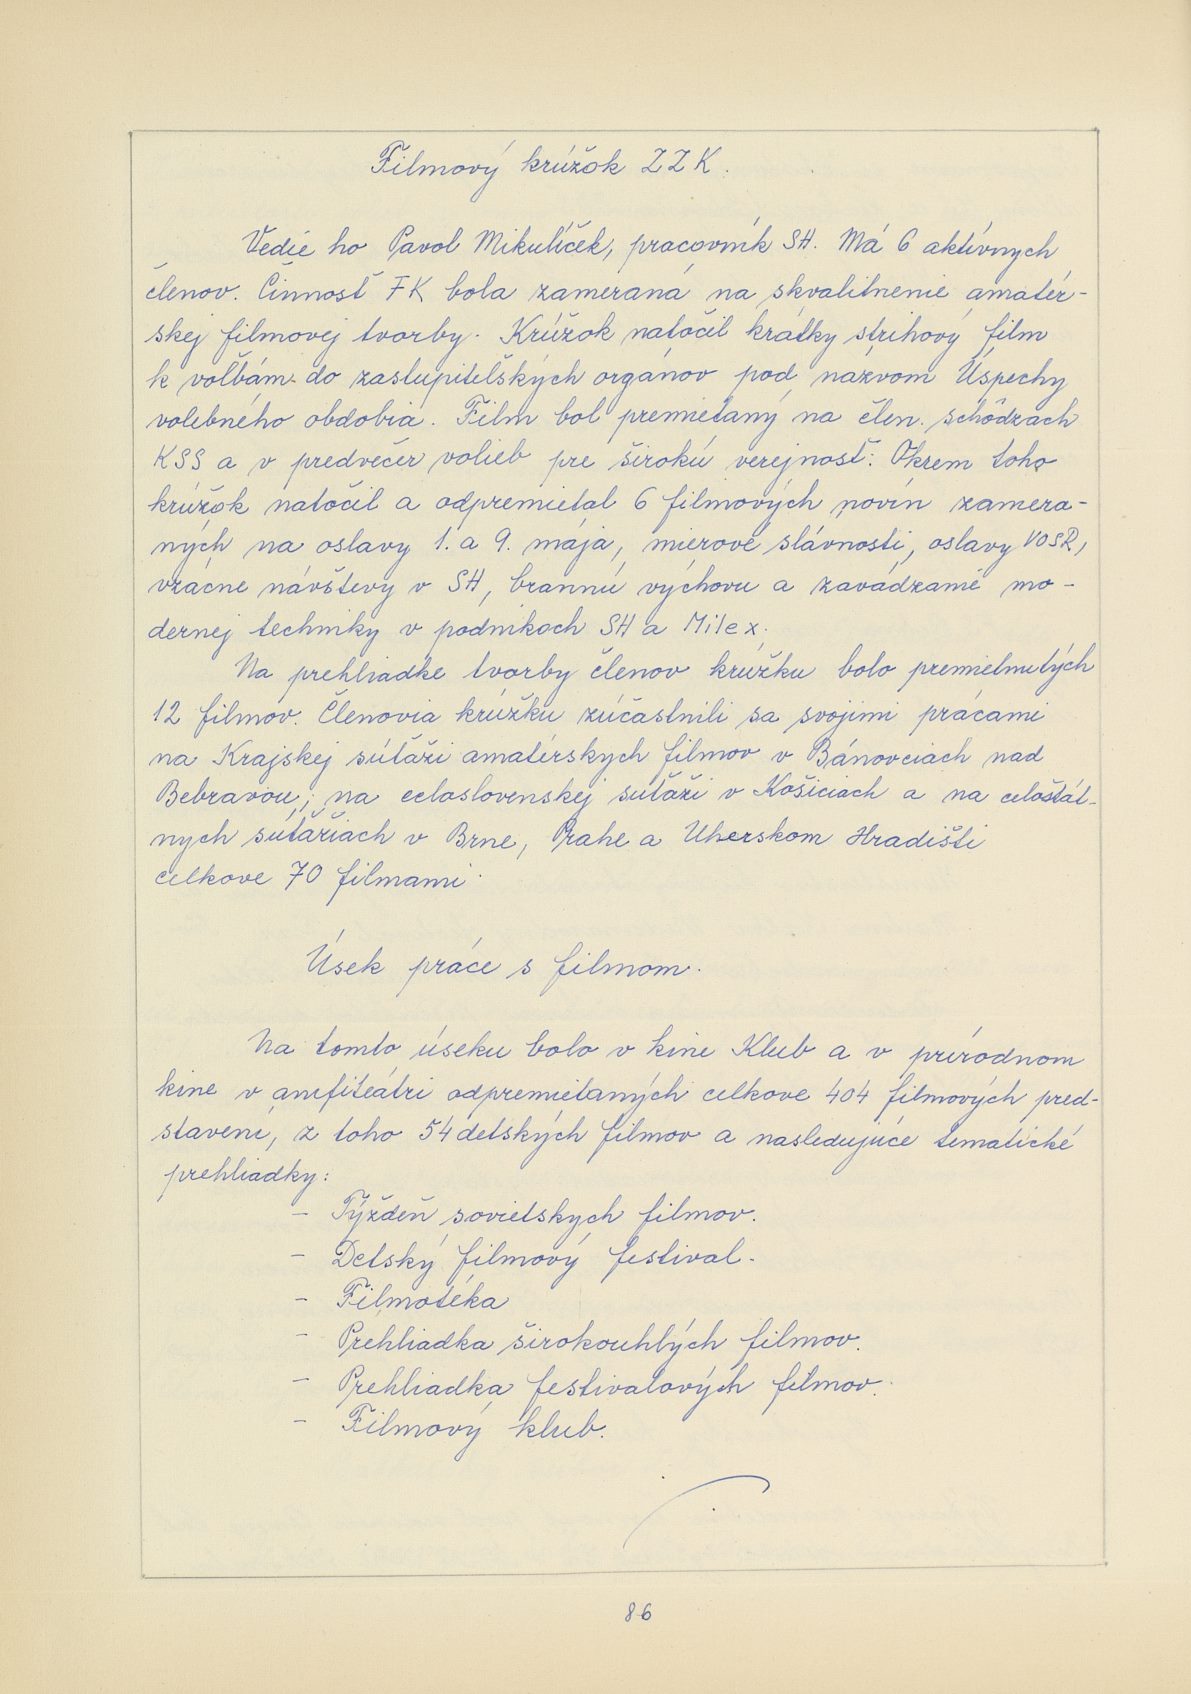 Filmový krúžok ZZK.
Vedie ho Pavol Mikulíček, pracovník SH. Má 6 aktívnych
členov. Činnosť FK bola zameraná na skvalitnenie amatér-
skej filmovej tvorby. Krúžok natočil krátky strihový film
k voľbám do zastupiteľských orgánov pod názvom Úspechy
volebného obdobia. Film bol premietaný na člen. schôdzach
KSS a v predvečer volieb pre širokú verejnosť. Okrem toho
krúžok natočil a odpremietal 6 filmových novín zamera-
ných na oslavy 1. a 9. mája, mierové slávnosti, oslavy VOSR,
vzácne návštevy v SH, brannú výchovu a zavádzanie mo-
dernej techniky v podnikoch SH a Milex.
Na prehliadke tvorby členov krúžku bolo premietnutých
12 filmov. Členovia krúžku zúčastnili sa svojimi prácami
na Krajskej súťaži amatérskych filmov v Bánovciach nad
Bebravou, na celoslovenskej súťaži v Košiciach a na celoštát-
nych súťažiach v Brne, Prahe a Uherskom Hradišti
celkove 70 filmami.
Úsek práce s filmom.
Na tomto úseku bolo v kine Klub a v prírodnom
kine v amfiteátri odpremietaných celkove 404 filmových pred-
stavení, z toho 54 detských filmov a nasledujúce tematické
prehliadky:
- Týždeň sovietskych filmov.
- Detský filmový festival.
- Filmotéka
- Prehliadka širokouhlých filmov.
- Prehliadka festivalových filmov.
- Filmový klub.
86